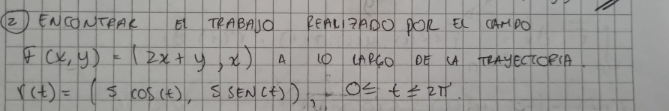 ② ENCONTRAR EL TRABAJO REALIZADO POR EL CAMPO
F(x,y) = (2x+y, x) A LO LARGO DE LA TRAYECTORIA.
r(t) = (5 cos(t), 5 SEN(t)) 0≤ t ≤ 2π.